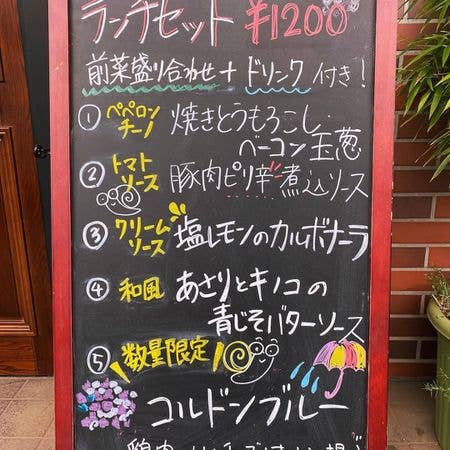 ランチセット ¥1200
前菜盛り合わせ+ドリンク付き!
① ペペロンチーノ 焼きとうもろこし・ベーコン玉葱
② トマトソース 豚肉ピリ辛煮込ソース
③ クリームソース 塩レモンのカルボナーラ
④ 和風 あさりとキノコの
青じそバターソース
⑤ 数量限定
コルドンブルー
鶏肉